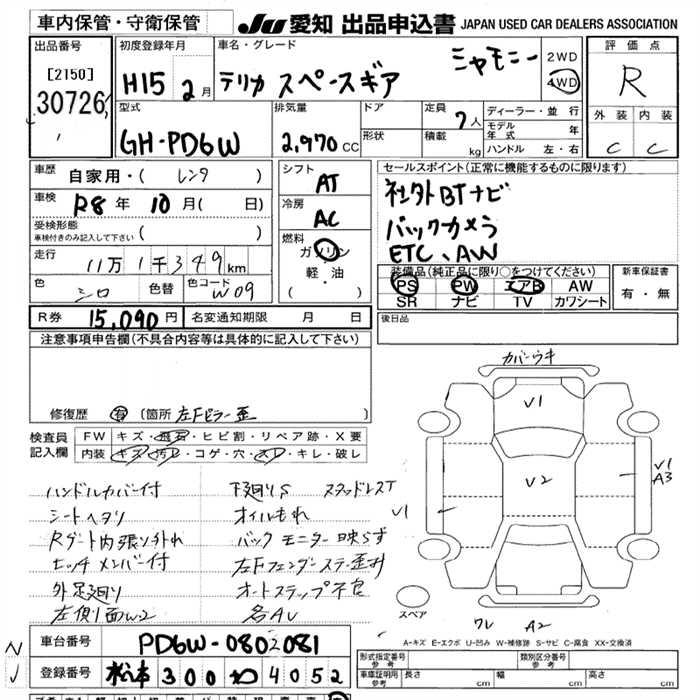 車内保管・守衛保管 JU 愛知 出品申込書 JAPAN USED CAR DEALERS ASSOCIATION
出品番号 [2150] 30726
初度登録年月 H15 2月
車名・グレード デリカ スペースギア シャモニー
2WD
4WD
評価点 R
外装 内装
C C
型式 GH-PD6W
排気量 2,970 CC
ドア
形状
定員 7人
積載 kg
ディーラー・並行
モデル年式 年
ハンドル 左・右
車歴 自家用・( レンタ )
車検 R8年 10月( 日)
受検形態
車検付きのみ記入して下さい ( )
走行 11万1千349km
色 シロ 色替 色コード W09
シフト AT
冷房 AC
燃料 ガソリン
軽・油
( ・ )
セールスポイント(正常に機能するものに限ります)
社外BTナビ
バックカメラ
ETC、AW
装備品(純正品に限り○をつけてください)
PS PW エアB AW
SR ナビ TV カワシート
新車保証書
有・無
R券 15,090円 名変通知期限 月 日
後日品
注意事項申告欄(不具合内容等は具体的に記入して下さい)
修復歴 有 〔箇所 左Fピラー歪 〕
検査員記入欄
FW キズ・飛石・ヒビ割・リペア跡・X要
内装 キズ・汚レ・コゲ・穴・スレ・キレ・破レ
ハンドルカバー付 下廻りS スタッドレスT
シートヘタリ オイルもれ
Rゲート内張り外れ バックモニター映らず
ヒッチメンバー付 左Fフェンダーステー歪
外足廻り オートステップ不良
左側面W2 各AU
カバーウキ
V1
V2
V1
V1
A3
スペア
ワレ A2
A-キズ E-エクボ U-凹み W-補修跡 S-サビ C-腐食 XX-交換済
NJ
車台番号 PD6W-0802081
登録番号 松本 300 わ 4052
形式指定番号 参考 類別区分番号 参考
車庫証明用 参考 長さ cm 幅 cm 高さ cm